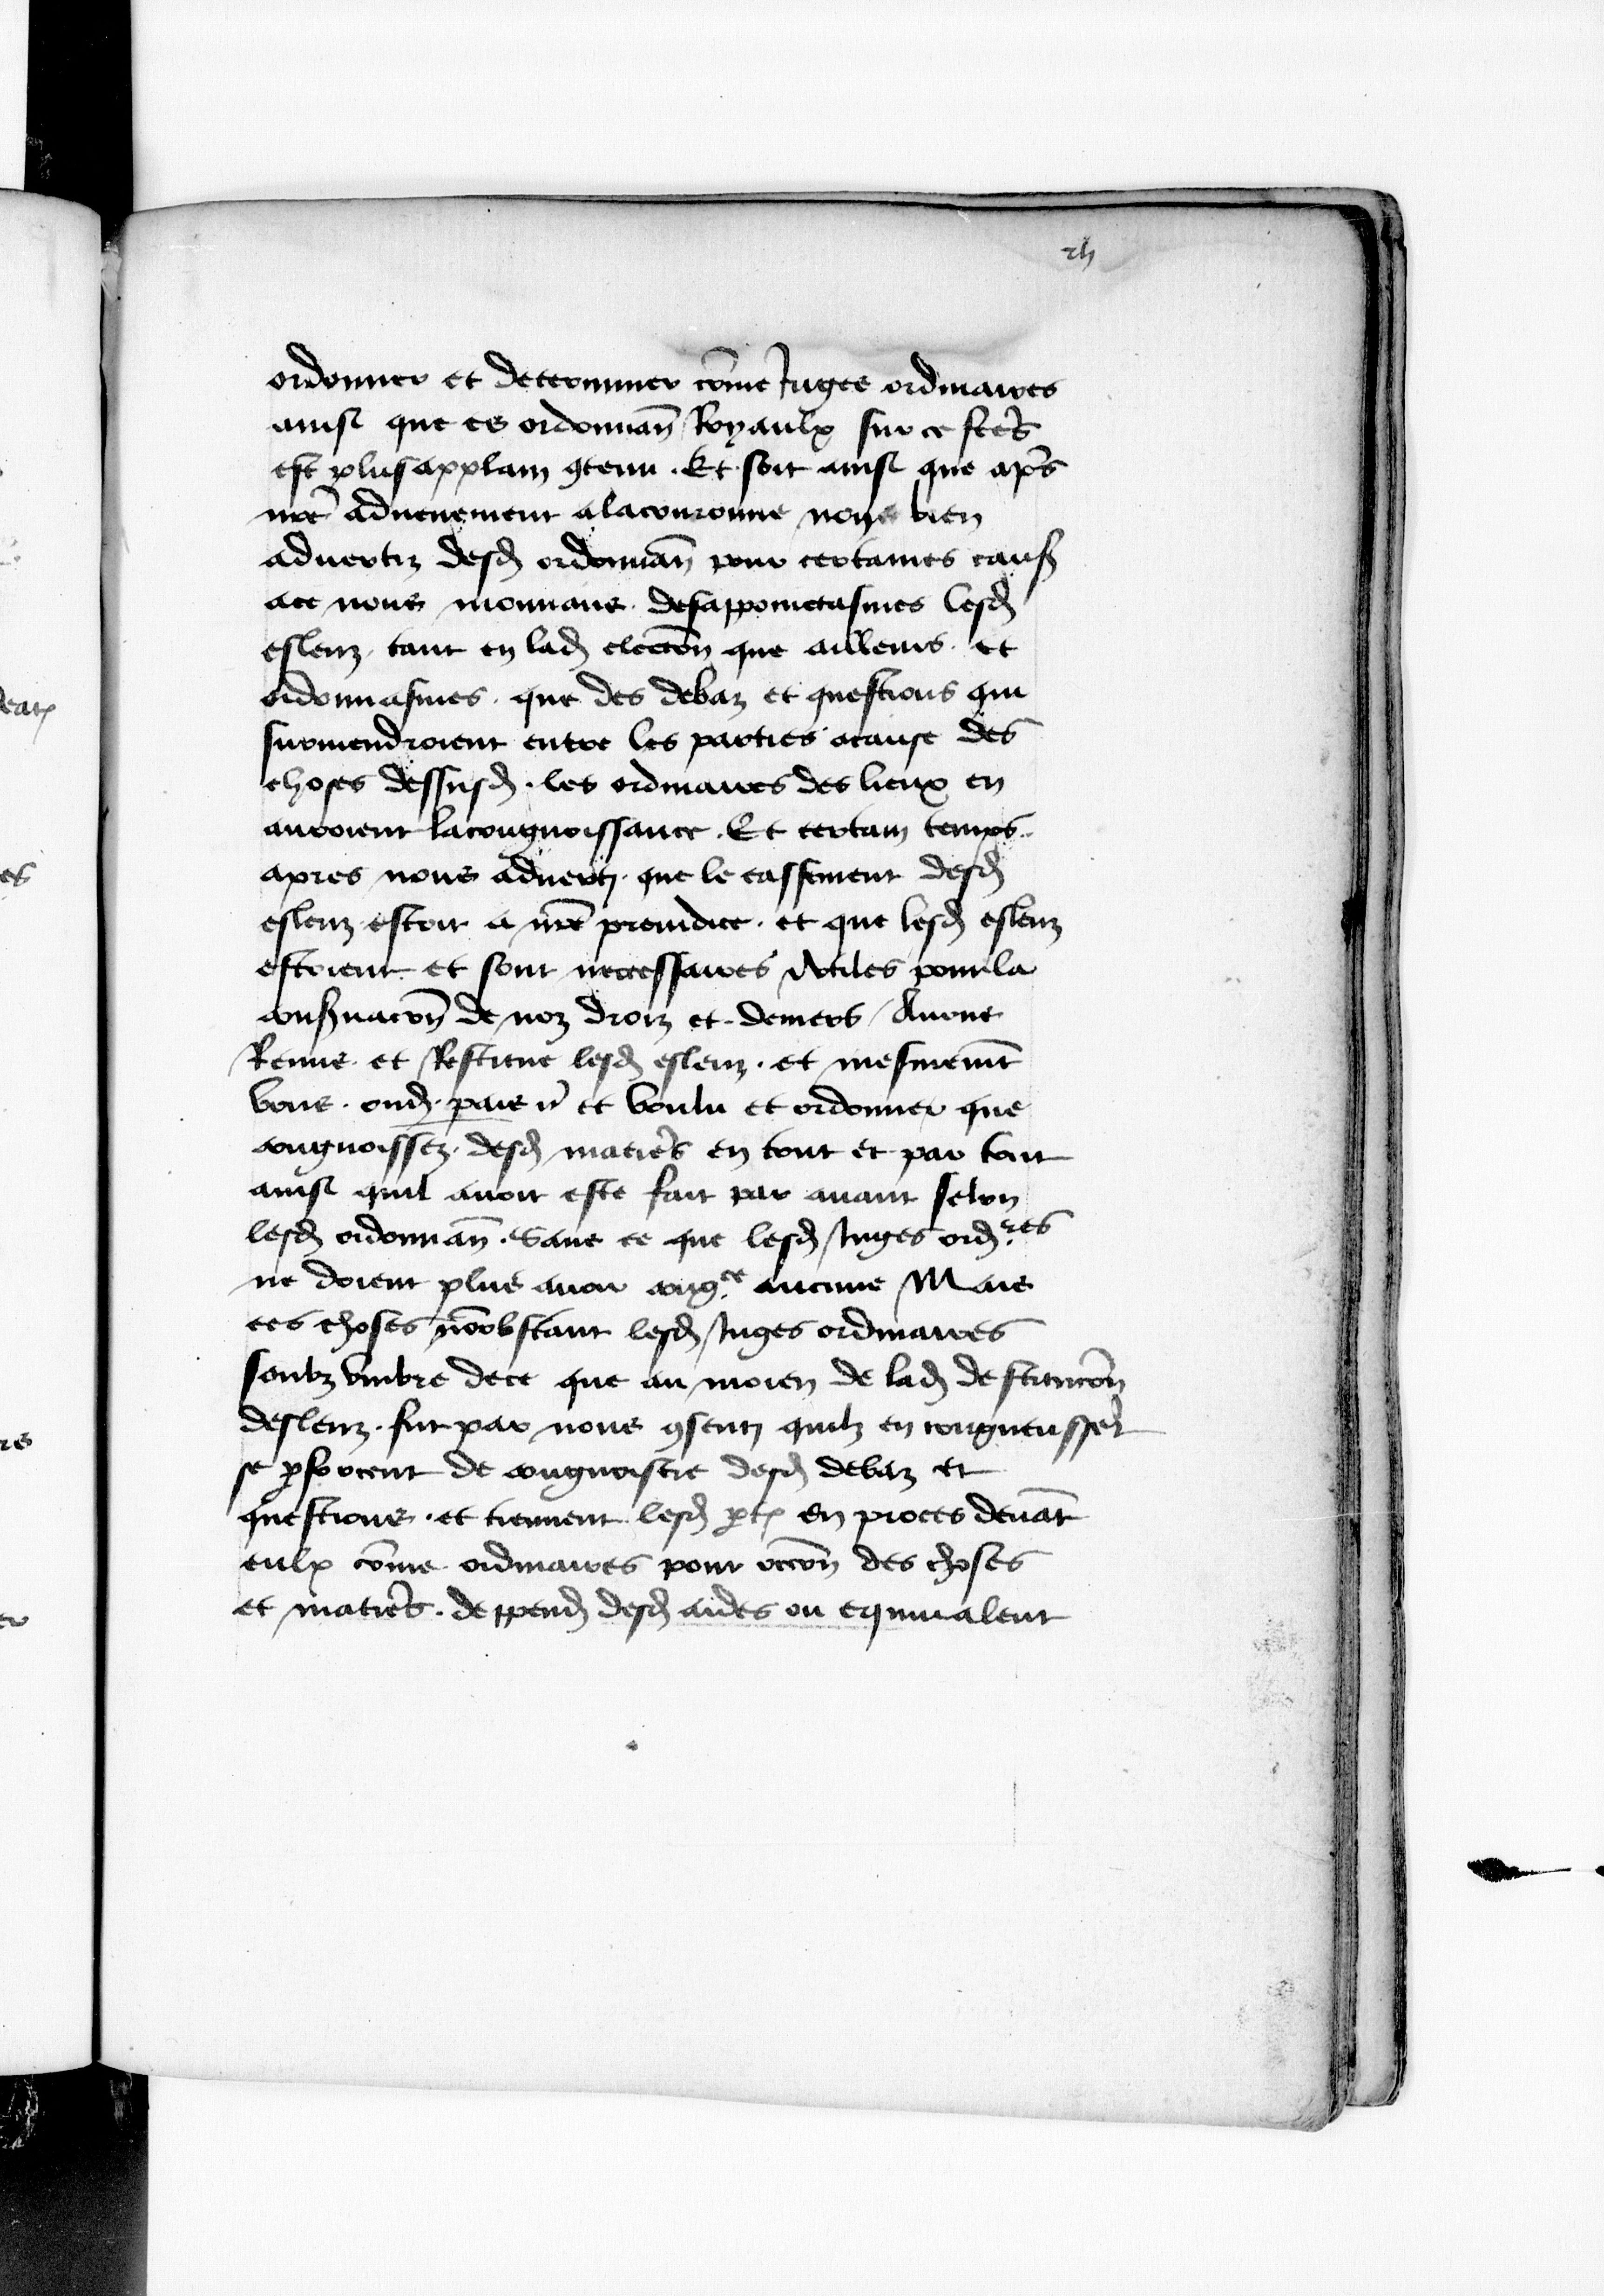 ordonner et determiner cōme Juges ordinaires
ainsi que es ordonnan̄ Royaulx sur ce fctēs
est plus applain 9tenu. Et soit ainsi que apr̄s
nr̄e aduenement a la couronne nous bien
aduertiz desd ordonnan̄ pour certaines caus
ace nous mouuans. desappoinctasmes lesd
esleuz. tant en lad electōn que ailleurs. et
ordonnasmes. que des debaz et questions qui
suruiendroient entre les parties acause des
choses dessusd. les ordinaires des lieux en
auroient la congnoissance. Et certain temps.
apres nous aduerti. que le cassement desd
esleuz estoit a nr̄e preiudice. et que lesd esleuz
estoient et sont necessaires vtiles pour la
conseruacon̄ de noz droiz et deniers / Auons
Remis et Restitue lesd esleuz. et mesmemt̄
vous. oud. pais et voulu et ordonner que
congnoissez. desd matier̄s en tout et par tout
ainsi quil auoit este fait par auant selon
lesd ordonnan̄. Sans ce que lesd Juges ord.res
ne doient plus auoir cong.ce aucune Mais
ces choses nōobstant lesd Juges ordinaires
soubz vmbre de ce que au moien de lad destitucōn
desleuz. fut par nous 9senti quilz en congneusser̄
se p̄forcent de congnoistre desd debaz et
questions. et tiennent lesd p̄t en proces deuāt
eulx cōme ordinaires pour occōn des choses
et matier̄s. deppend desd aides ou equiualent